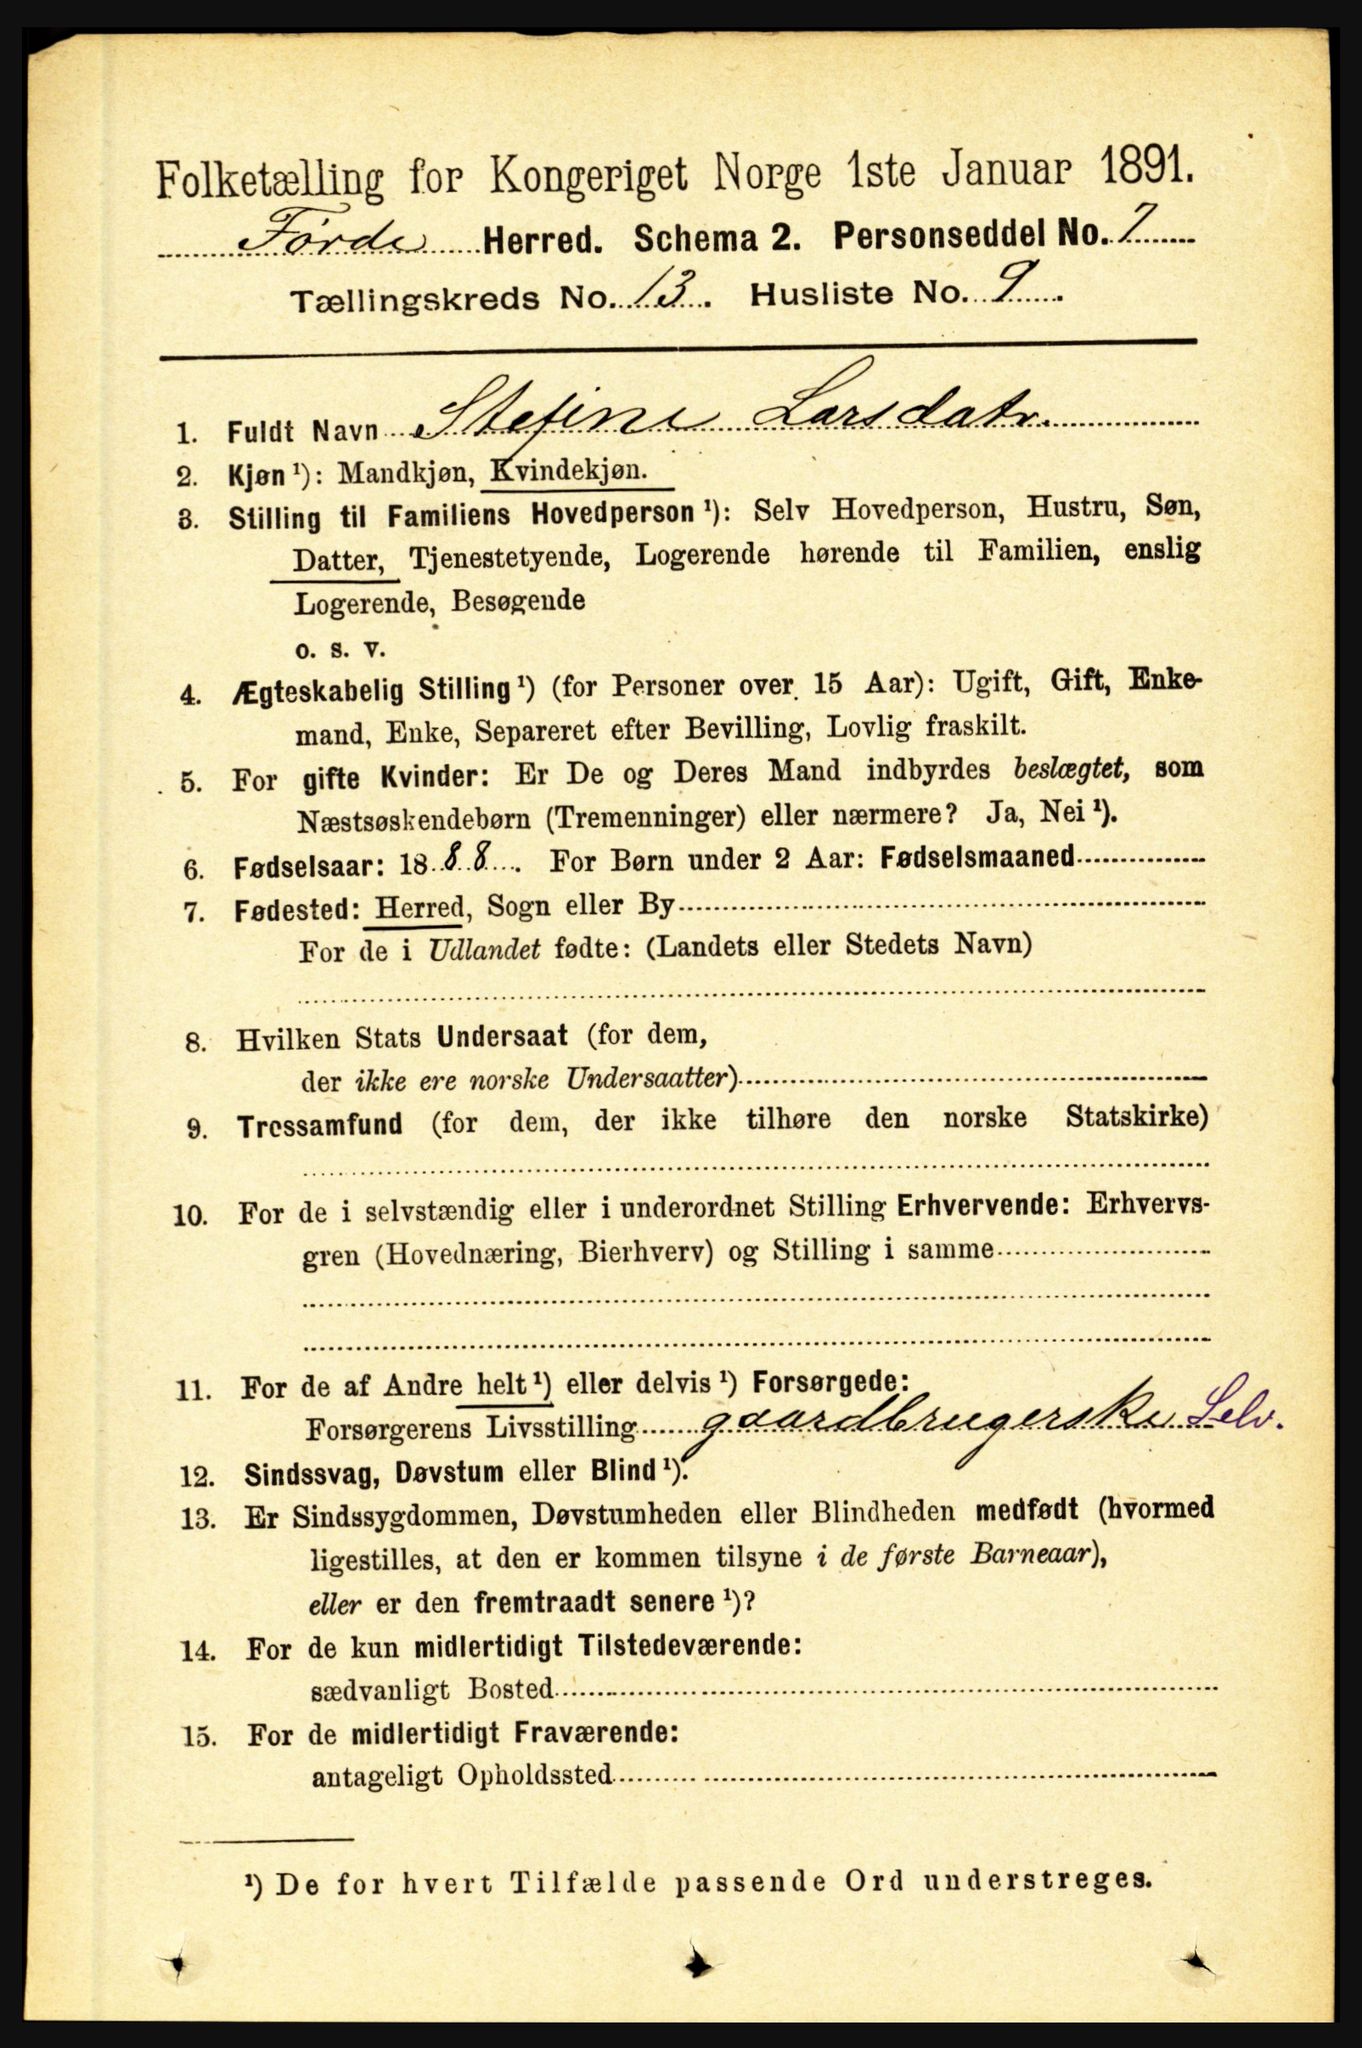 Folketælling for Kongeriget Norge 1ste Januar 1891.
Førde Herred. Schema 2. Personseddel No. 7
Tællingskreds No. 13. Husliste No. 9
1. Fuldt Navn Stefine Larsdatr.
2. Kjøn ¹): Mandkjøn, Kvindekjøn.
3. Stilling til Familiens Hovedperson ¹): Selv Hovedperson, Hustru, Søn,
Datter, Tjenestetyende, Logerende hørende til Familien, enslig
Logerende, Besøgende
o. s. v.
4. Ægteskabelig Stilling ¹) (for Personer over 15 Aar): Ugift, Gift, Enke-
mand, Enke, Separeret efter Bevilling, Lovlig fraskilt.
5. For gifte Kvinder: Er De og Deres Mand indbyrdes beslægtet, som
Næstsøskendebørn (Tremenninger) eller nærmere? Ja, Nei ¹).
6. Fødselsaar: 1888. For Børn under 2 Aar: Fødselsmaaned
7. Fødested: Herred, Sogn eller By
For de i Udlandet fødte: (Landets eller Stedets Navn)
8. Hvilken Stats Undersaat (for dem,
der ikke ere norske Undersaatter)
9. Trossamfund (for dem, der ikke tilhøre den norske Statskirke)
10. For de i selvstændig eller i underordnet Stilling Erhvervende: Erhvervs-
gren (Hovednæring, Bierhverv) og Stilling i samme
11. For de af Andre helt ¹) eller delvis ¹) Forsørgede:
Forsørgerens Livsstilling gaardbrugerske Selv.
12. Sindssvag, Døvstum eller Blind ¹).
13. Er Sindssygdommen, Døvstumheden eller Blindheden medfødt (hvormed
ligestilles, at den er kommen tilsyne i de første Barneaar),
eller er den fremtraadt senere ¹)?
14. For de kun midlertidigt Tilstedeværende:
sædvanligt Bosted
15. For de midlertidigt Fraværende:
antageligt Opholdssted
¹) De for hvert Tilfælde passende Ord understreges.